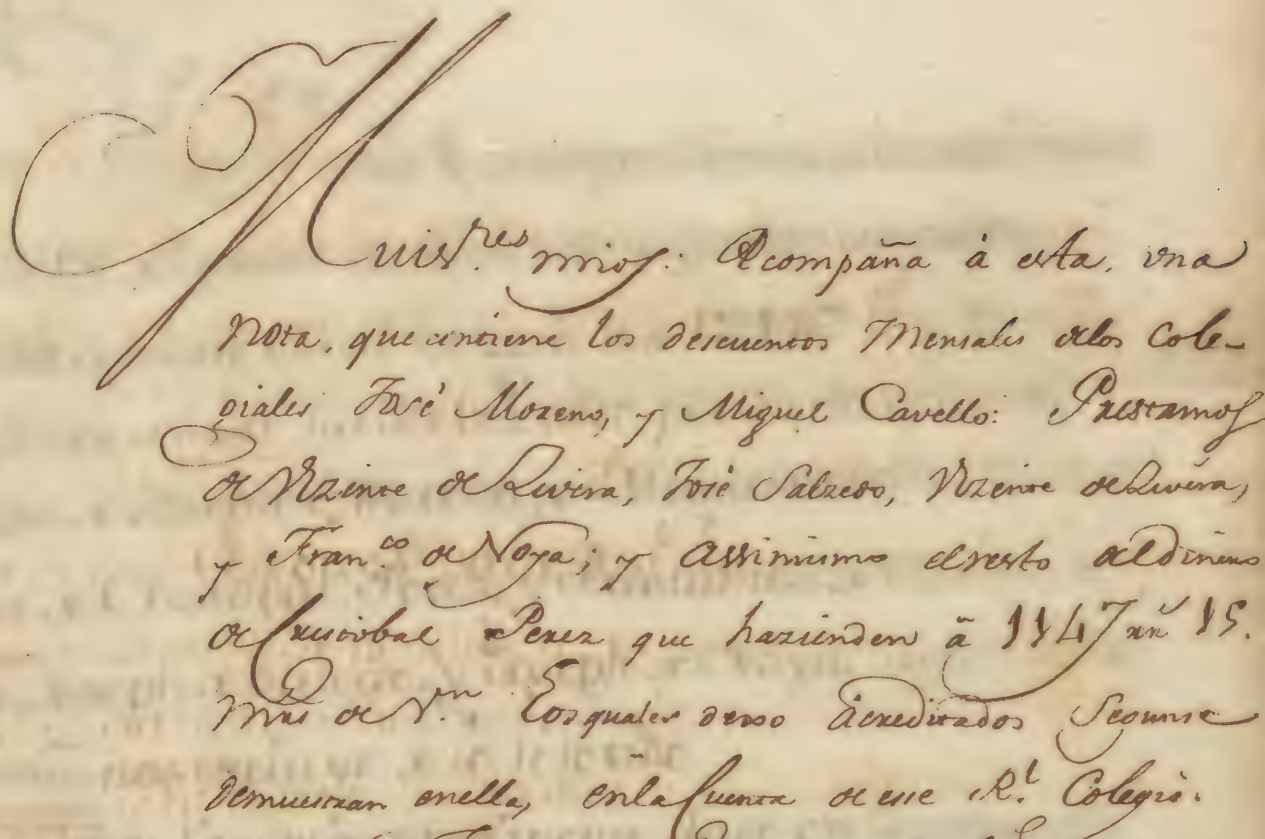 Muis.res mios: Acompaña à esta, vna
Nota, que contiene los descuentos Mensales delos Cole-
giales José Moreno, y Miguel Cavello: Prestamos
de Vizente de Rivera, José Salzedo, Vizente de Rivera,
y Fran.co de Noya; y assimismo el resto del Dinero
de Cristobal Perez que hazienden â 1147 rrs 15.
Mrs de V.n Los quales dexo Acreditados Segunse
demuestran enella, enla Cuenta de ese R.l Colegio.